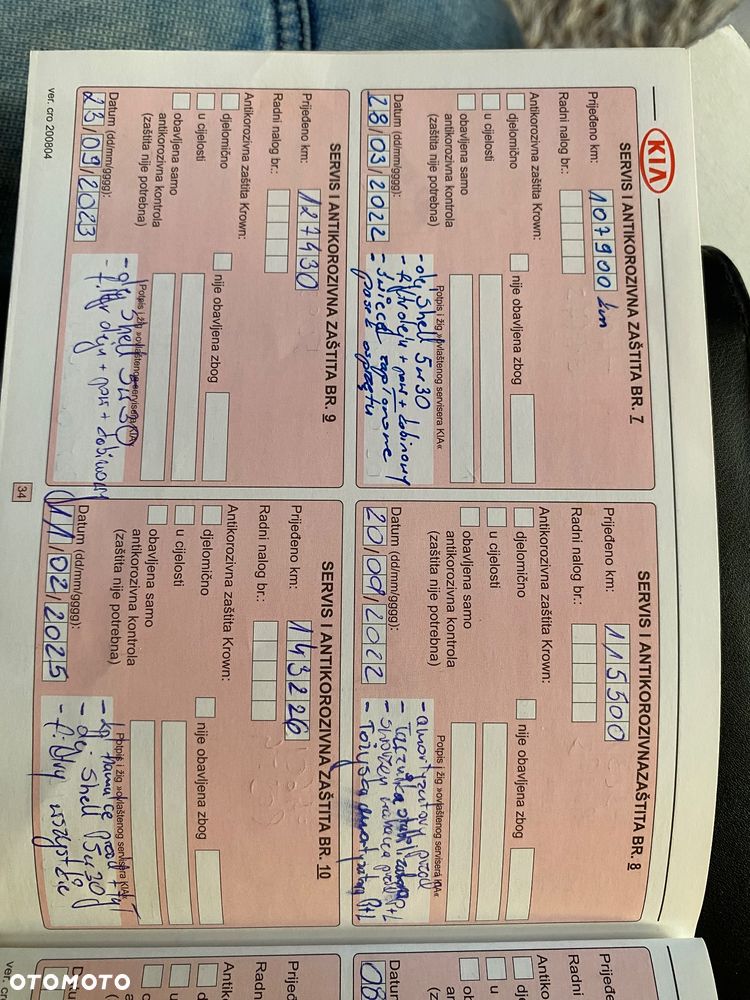 KIA
SERVIS I ANTIKOROZIVNA ZAŠTITA BR. 7
Prijeđeno km: 107900 km
Radni nalog br.:
Antikorozivna zaštita Krown:
djelomično
nije obavljena zbog
u cijelosti
obavljena samo
antikorozivna kontrola
(zaštita nije potrebna)
Potpis i žig »ovlaštenog servisera KIA«
Datum (dd/mm/gggg):
28/03/2022
- olej Shell 5w30
- filtr oleju + pow + kabinowy
- świece zapłonowe
- pasek osprzętu
SERVIS I ANTIKOROZIVNAZAŠTITA BR. 8
Prijeđeno km: 115500
Radni nalog br.:
Antikorozivna zaštita Krown:
djelomično
nije obavljena zbog
u cijelosti
obavljena samo
antikorozivna kontrola
(zaštita nije potrebna)
Potpis i žig »ovlaštenog servisera KIA«
Datum (dd/mm/gggg):
20/09/2022
- amortyzatory przód
- P+L
- P+L
SERVIS I ANTIKOROZIVNA ZAŠTITA BR. 9
Prijeđeno km: 127430
Radni nalog br.:
Antikorozivna zaštita Krown:
djelomično
nije obavljena zbog
u cijelosti
obavljena samo
antikorozivna kontrola
(zaštita nije potrebna)
Potpis i žig »ovlaštenog servisera KIA«
Datum (dd/mm/gggg):
23/09/2023
- olej Shell 5w30
- filtr oleju + pow + kabinowy
SERVIS I ANTIKOROZIVNA ZAŠTITA BR. 10
Prijeđeno km: 143226
Radni nalog br.:
Antikorozivna zaštita Krown:
djelomično
nije obavljena zbog
u cijelosti
obavljena samo
antikorozivna kontrola
(zaštita nije potrebna)
Potpis i žig »ovlaštenog servisera KIA«
Datum (dd/mm/gggg):
11/02/2025
- hamulce przód + tył
- olej Shell 5w30
- filtry wszystkie
ver. cro 200804
34
Prijeđe
Radni
Antik
Datur
08
Prije
Rad
Anti
ver. cr
OTOMOTO